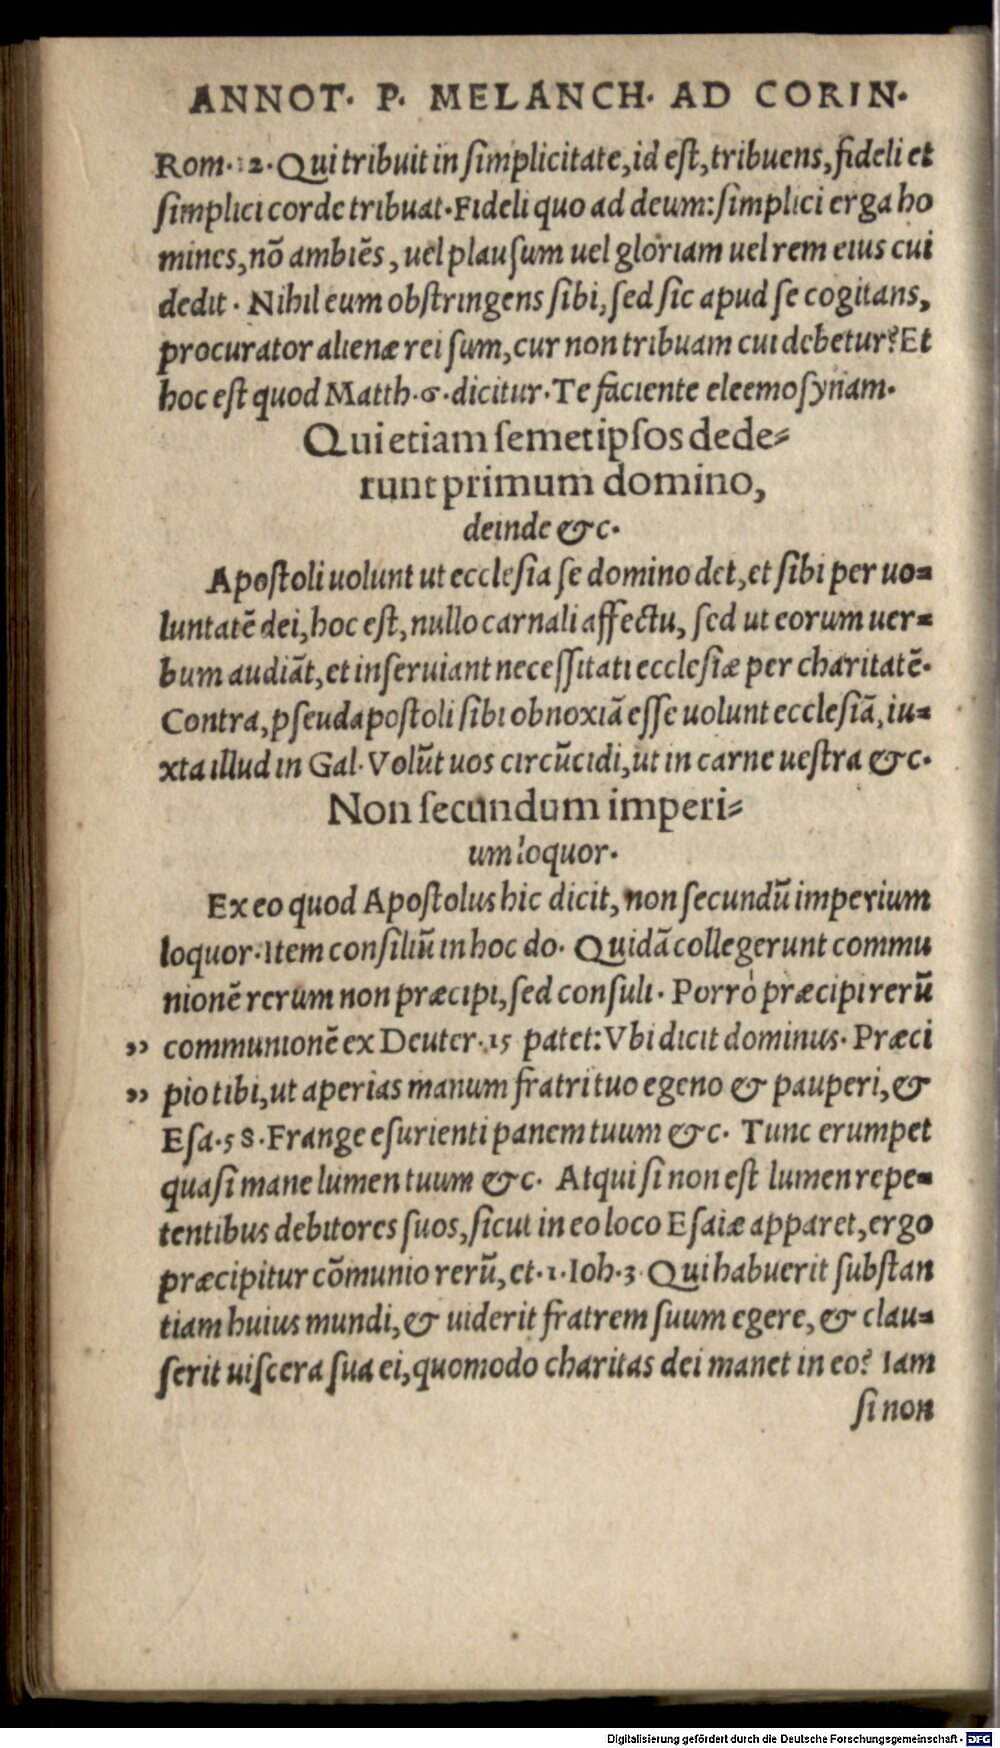 ANNOT. P. MELANCH. AD CORIN.
Rom. 12. Qui tribuit in ſimplicitate, id eſt, tribuens, fideli et
ſimplici corde tribuat. Fideli quo ad deum: ſimplici erga ho
mines, nō ambiēs, uel plauſum uel gloriam uel rem eius cui
dedit. Nihil eum obſtringens ſibi, ſed ſic apud ſe cogitans,
procurator alienæ rei ſum, cur non tribuam cui debetur? Et
hoc eſt quod Matth. 6. dicitur. Te faciente eleemoſynam.
Qui etiam ſemetipſos dede⸗
runt primum domino,
deinde &c.
Apoſtoli uolunt ut eccleſia ſe domino det, et ſibi per uo⸗
luntatē dei, hoc eſt, nullo carnali affectu, ſed ut eorum uer⸗
bum audiāt, et inſeruiant neceſſitati eccleſiæ per charitatē.
Contra, pſeudapoſtoli ſibi obnoxiā eſſe uolunt eccleſiā, iu⸗
xta illud in Gal. Volūt uos circūcidi, ut in carne ueſtra &c.
Non ſecundum imperi⸗
um loquor.
Ex eo quod Apoſtolus hic dicit, non ſecundū imperium
loquor. Item conſiliū in hoc do. Quidā collegerunt commu
nionē rerum non præcipi, ſed conſuli. Porrò præcipi rerū
,, communionē ex Deuter. 15 patet: Vbi dicit dominus. Præci
,, pio tibi, ut aperias manum fratri tuo egeno & pauperi, &
Eſa. 58. Frange eſurienti panem tuum &c. Tunc erumpet
quaſi mane lumen tuum &c. Atqui ſi non eſt lumen repe⸗
tentibus debitores ſuos, ſicut in eo loco Eſaiæ apparet, ergo
præcipitur cōmunio rerū, et. 1. Ioh. 3. Qui habuerit ſubſtan
tiam huius mundi, & uiderit fratrem ſuum egere, & clau⸗
ſerit uiſcera ſua ei, quomodo charitas dei manet in eo? Iam
ſi non
Digitalisierung gefördert durch die Deutsche Forschungsgemeinschaft - DFG